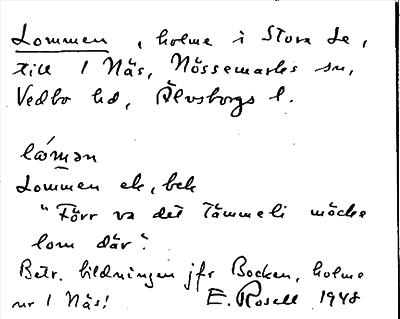 Lommen, holme i Stora Le,
till 1 Näs, Nössemarks sn,
Vedbo hd, Älvsborgs l.
lómən
Lommen ek, bek
"Förr va det Tämmeli möcke
lom där".
Betr. bildningen jfr Bocken, holme
nr 1 Näs! E. Rosell 1948